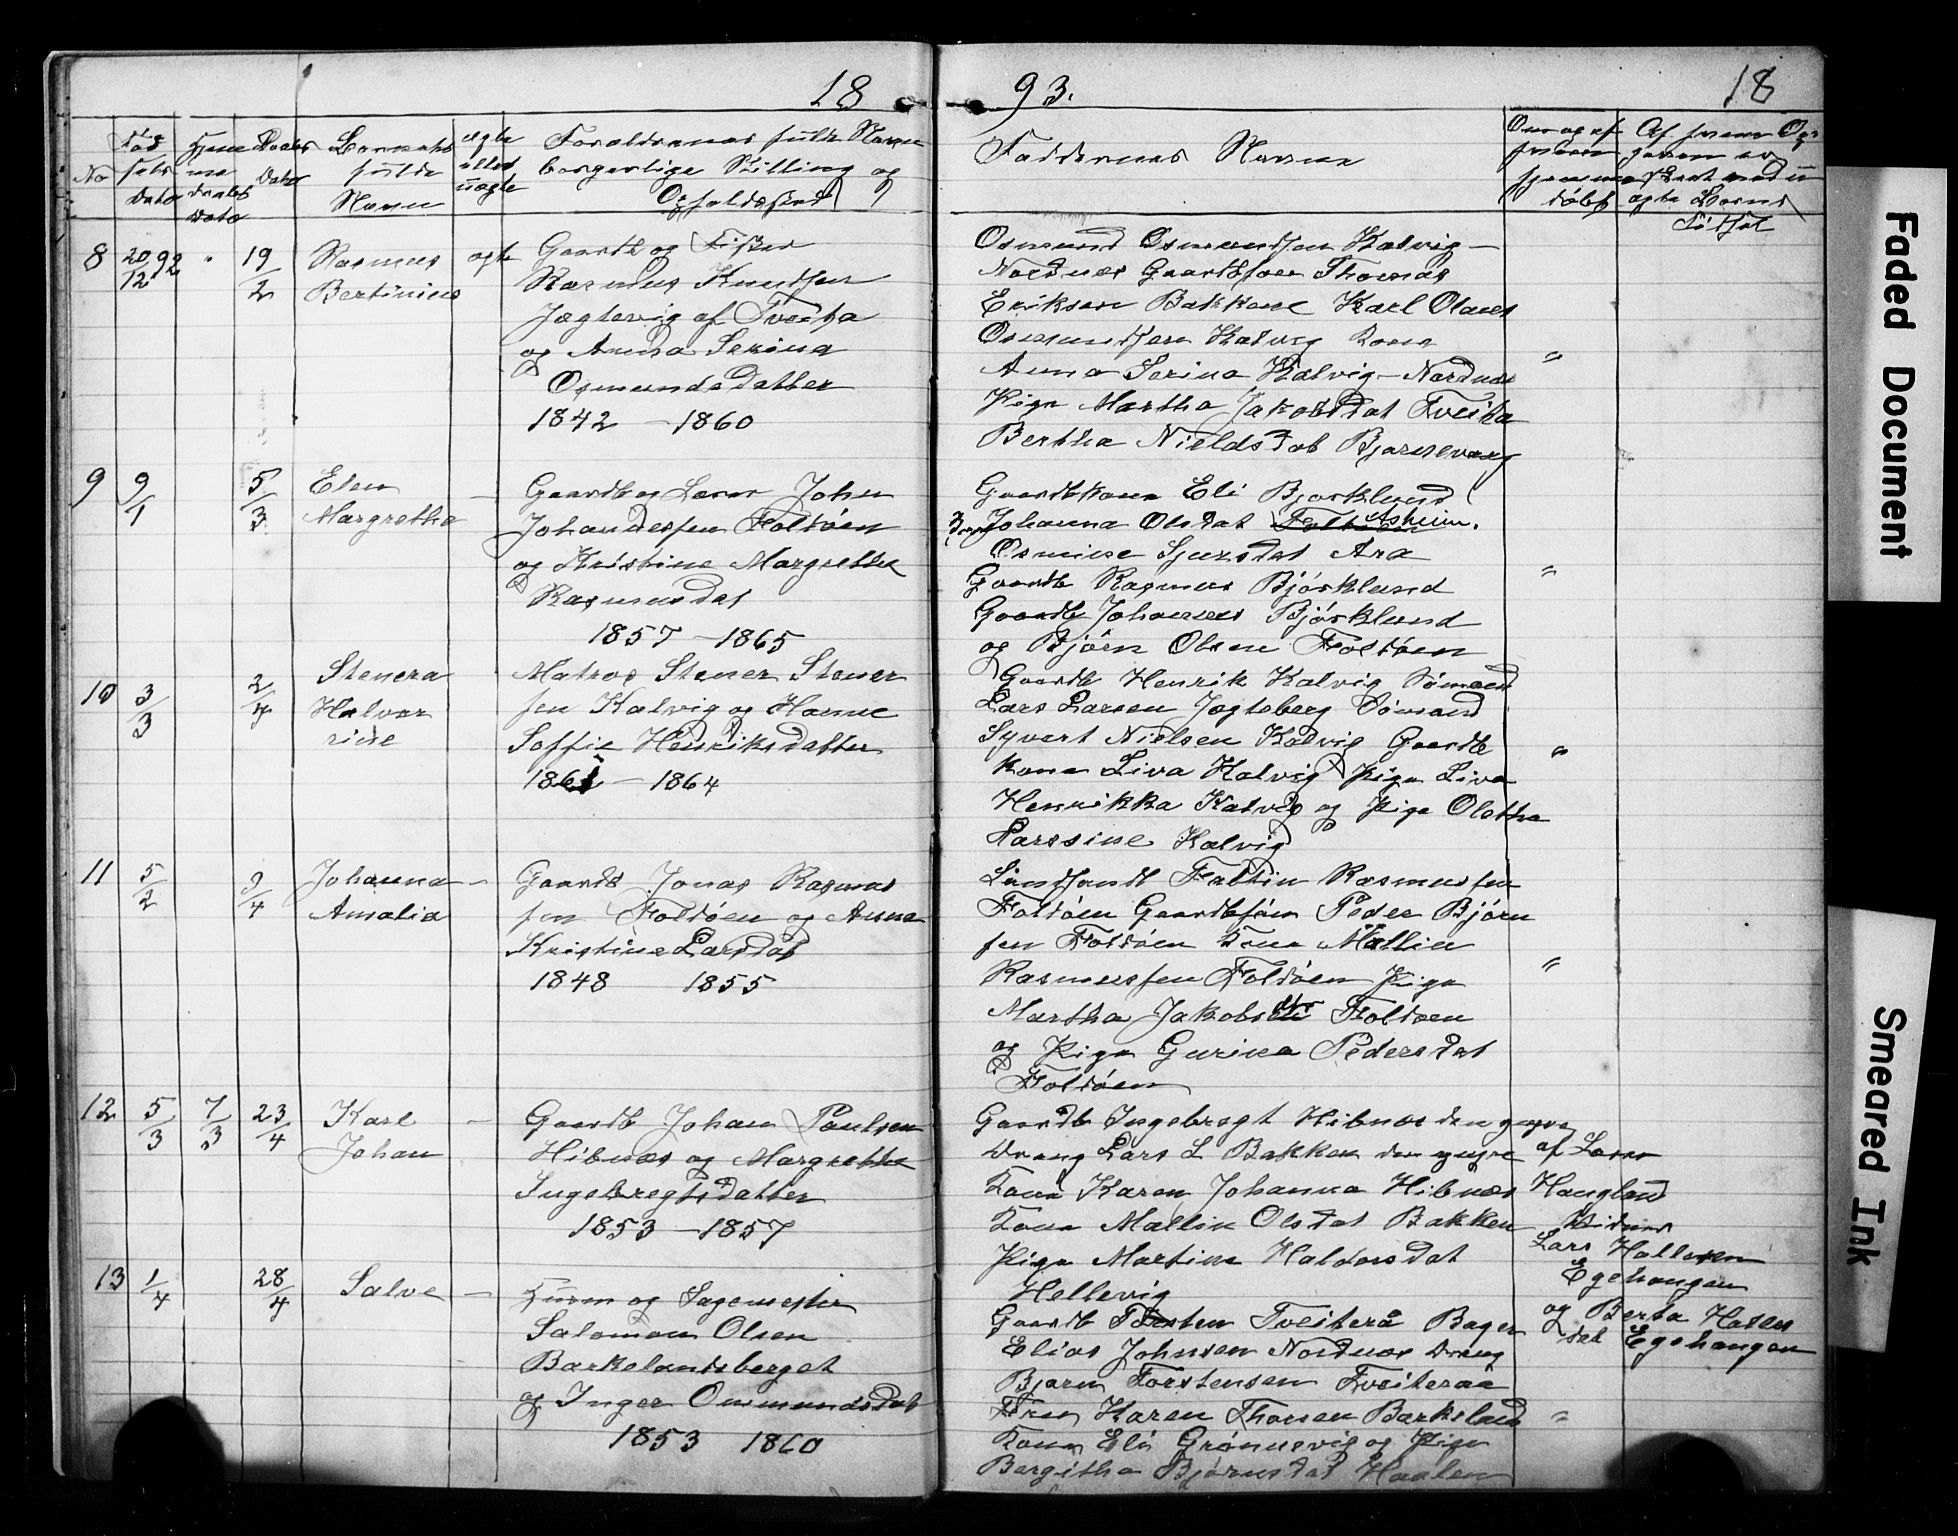 18
93.
18
No
Fød
sels
Dato
Hjem
me
daabs
Dato
Daabs
Dato
Barnets
fulde
Navn
ægte
eller
uægte
Forældrenes fulde Navn
borgerlige Stilling og
Opholdssted
Faddernes Navne
Om og af
hvem
hjemme
døbt
8
20/12 92
"
19/2
Rasmus
Bertinius
ægte
Gaardb og Fisker
Rasmus Knudsen
Jægtevig af Tveita
og Anna Serina
Osmundsdatter
1842 - 1860
Osmund Osmundsen Kalvig -
Nordnæs Gaardbsøn Thomas
Eriksen Bakkene Karl Olaus
Osmundsen Kalvig Kona
Anna Serina Kalvig - Nordnæs
Pige Martha Jakobsdat Tveita
Bertha Nielsdat
"
9
9/1
5/3
Elen
Margrethe
-
Gaardb og Lærer John
Johannessen Foldøen
og Kristine Margrethe
Rasmusdat
1857 - 1865
Gaardbkone Eli Bjørklund
Johanna Olsdat Foldøen Asheim.
Osmine Sjursdat Ara
Gaardb Rasmus Bjørklund
Gaardb Johannes Bjørklund
og Bjørn Olsen Foldøen
"
10
3/3
2/4
Stenera
Halvor
rine
Matros Stener Stener
sen Kalvig og Hanne
Soffie Henriksdatter
1861 - 1864
Gaardb Henrik Kalvig Sømand
Lars Larsen Jægteberg Sømand
Syvert Nielsen Kalvig Gaardb
kone Liva Kalvig Pige Liva
Henrikka Kalvig og Pige Oletha
Larssine Kalvig
"
11
5/2
9/4
Johanna
Amalia
-
Gaardb Jonas Rasmus
sen Foldøen og Anna
Kristine Larsdat
1848 1855
Landhandl Faltin Rasmussen
Foldøen Gaardbsøn Peder Bjørn
sen Foldøen Kone Mallin
Rasmussen Foldøen Pige
Martha Jakobsdtr Foldøen
og Pige Gurina Pedersdat
Foldøen
"
12
5/3
7/3
23/4
Karl
Johan
-
Gaardb Johan Paulsen
Hibnæs og Margrethe
Ingebregtsdatter
1853 - 1857
Gaardb Ingebregt Hibnæs den yngre
Dreng Lars L Bakken den yngre
Kone Karen Johanna Hibnæs
Kone Mallin Olsdat Bakken
Pige Martine Haldorsdat
Hellevig
af Lærer
Haugland
Vidner
Lars Hallesen
Egehaugen
og Berta Halles
dat Egehaugen
13
1/4
28/4
Salve
-
Husm og Sagemester
Salomon Olsen
Barkelandsberget
og Inger Osmundsdat
1853 1860
Gaardb Torsten Tveiteraa Bager
Elias Johnsen Nordnæs Dreng
Bjørn Torstensen Tveiteraa
Frøn Karen Thorsen Barkeland
Kone Eli Grønnevig og Pige
Bergitha Bjørnsdat Haalen
"
Faded Document
Smeared Ink